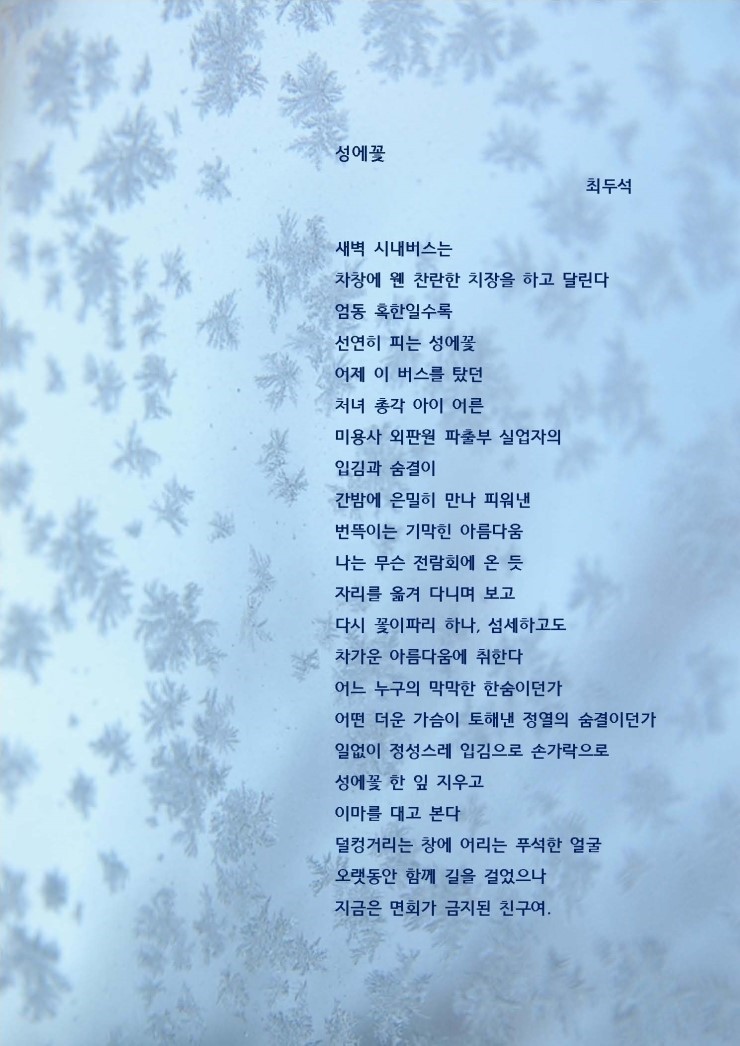 성에꽃
최두석
새벽 시내버스는
차창에 웬 찬란한 치장을 하고 달린다
엄동 혹한일수록
선연히 피는 성에꽃
어제 이 버스를 탔던
처녀 총각 아이 어른
미용사 외판원 파출부 실업자의
입김과 숨결이
간밤에 은밀히 만나 피워낸
번뜩이는 기막힌 아름다움
나는 무슨 전람회에 온 듯
자리를 옮겨 다니며 보고
다시 꽃이파리 하나, 섬세하고도
차가운 아름다움에 취한다
어느 누구의 막막한 한숨이던가
어떤 더운 가슴이 토해낸 정열의 숨결이던가
일없이 정성스레 입김으로 손가락으로
성에꽃 한 잎 지우고
이마를 대고 본다
덜컹거리는 창에 어리는 푸석한 얼굴
오랫동안 함께 길을 걸었으나
지금은 면회가 금지된 친구여.